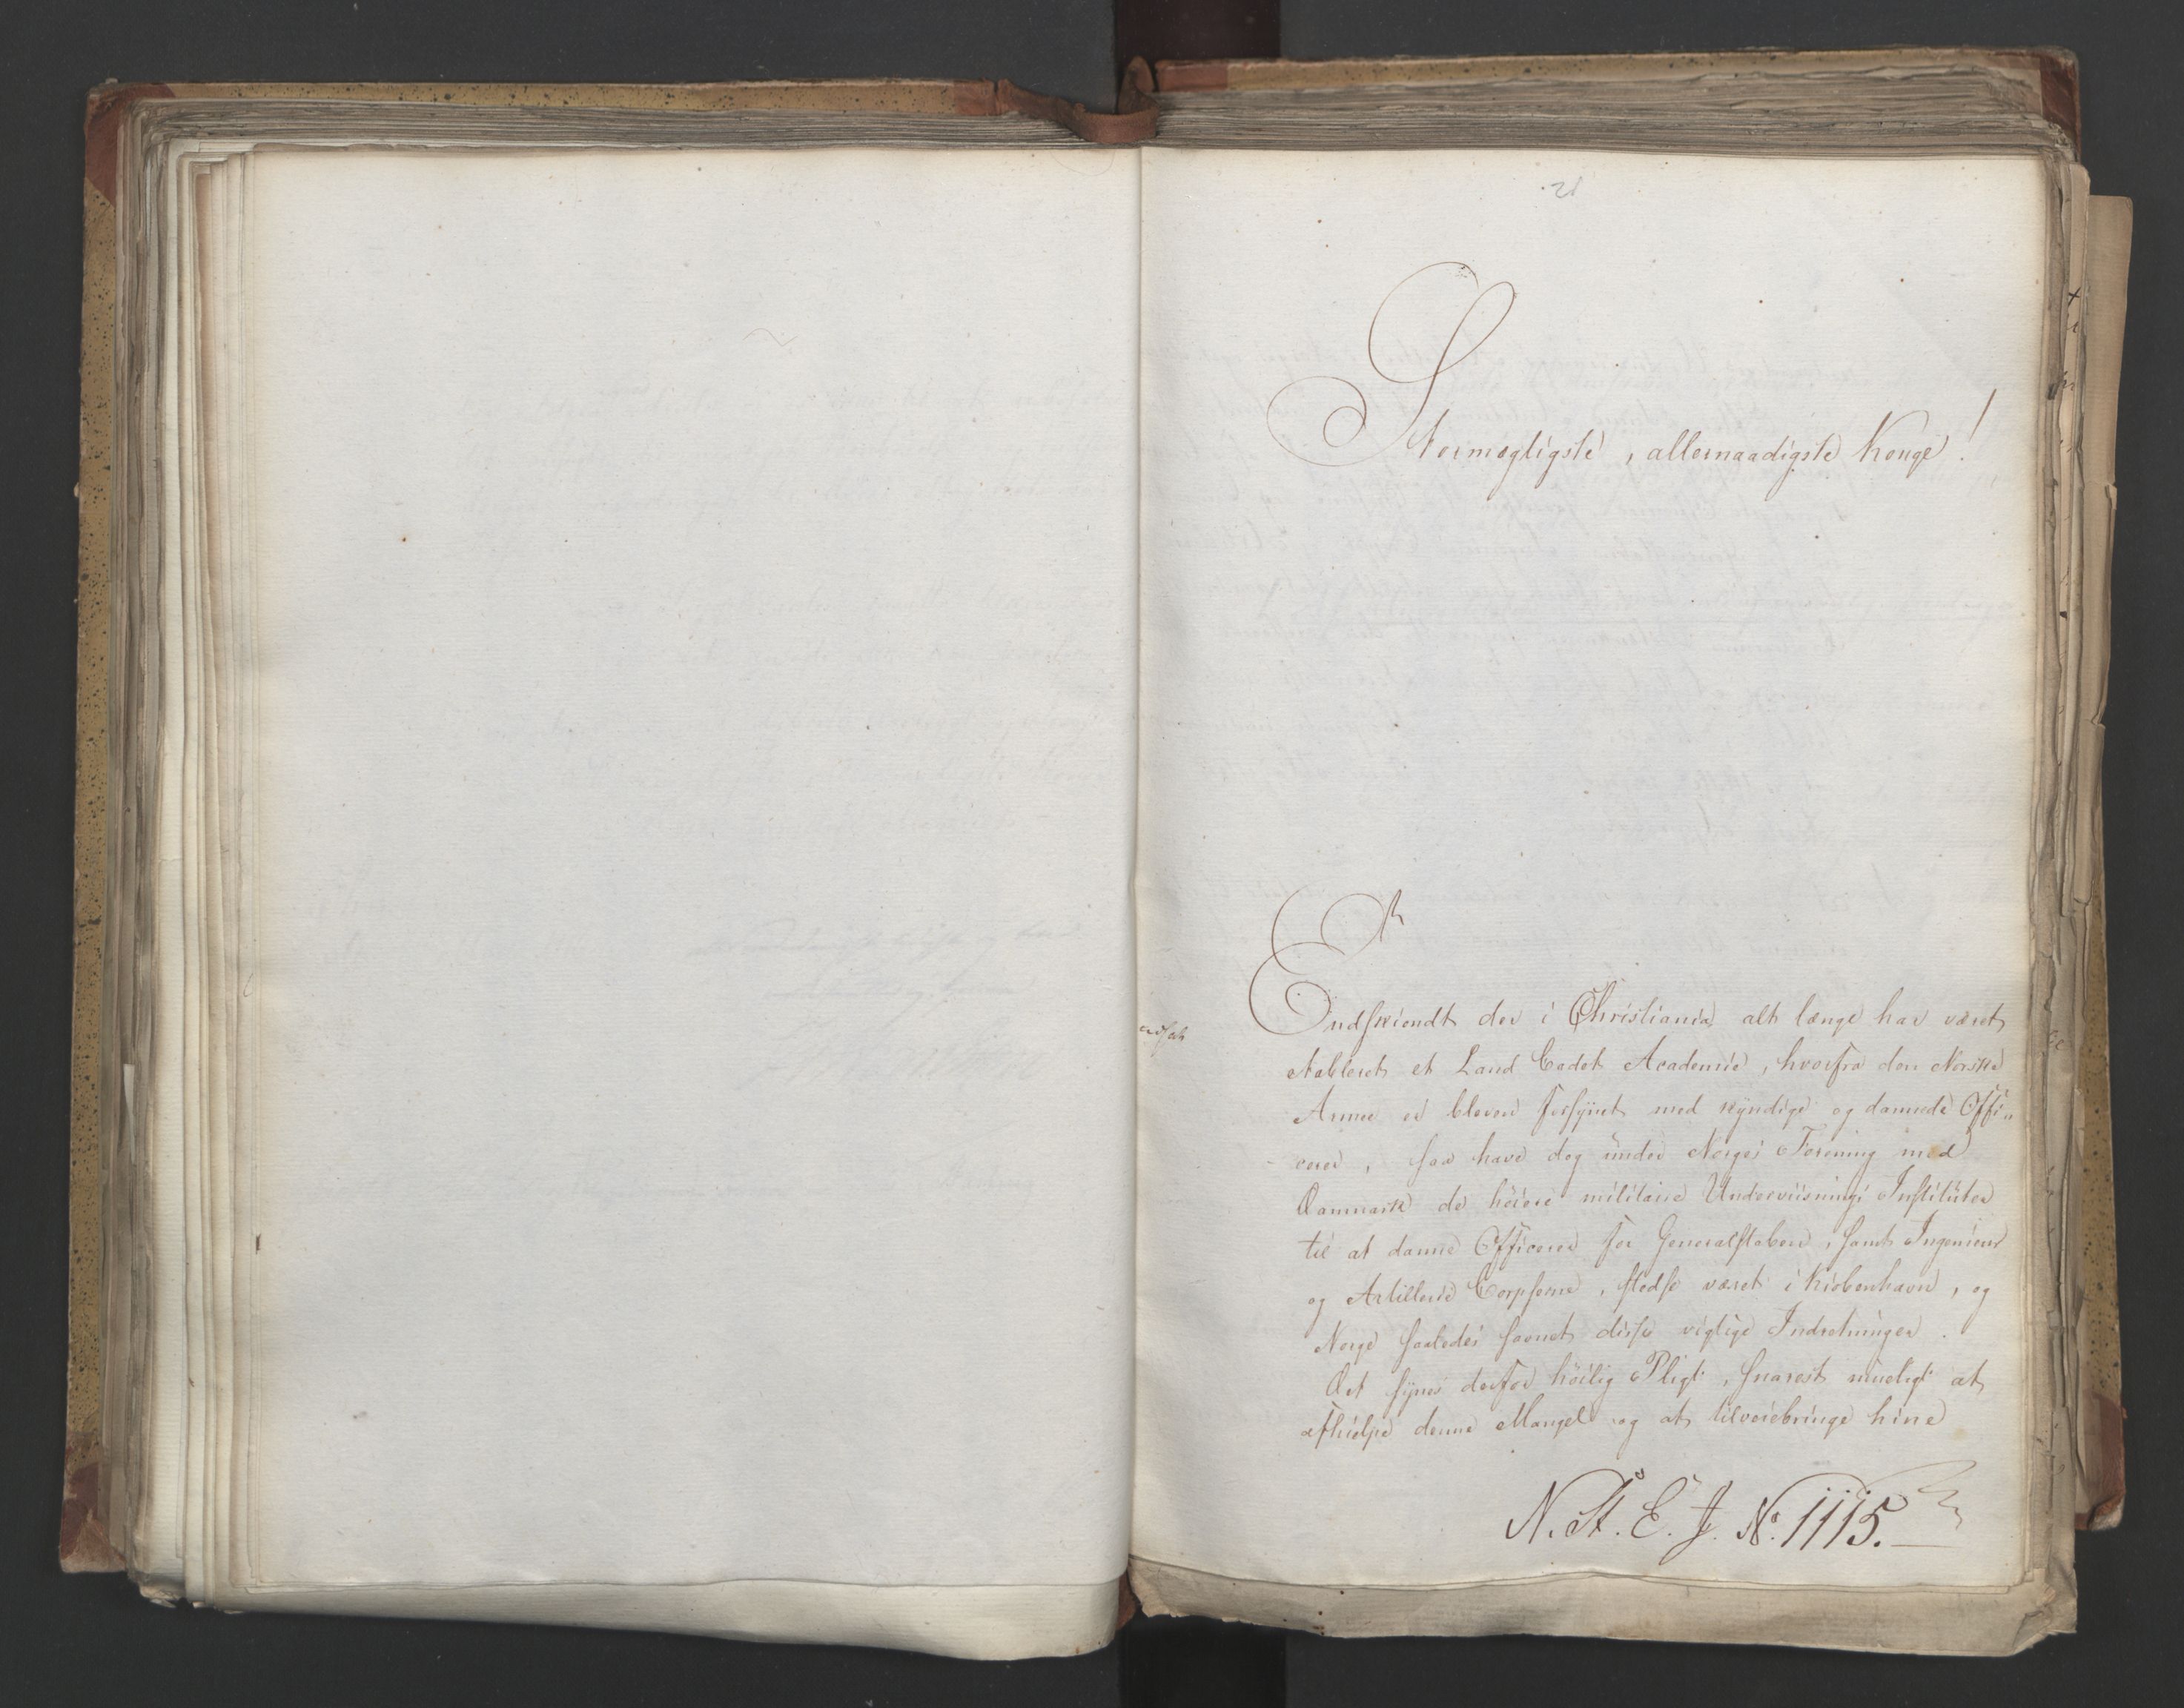 21
Stormægtigste, allernaadigste Konge!
Endskiendt der i Christiania alt længe har været
etableret et Land Cadet Academie, hvorfra den Norske
Armee er bleven forsynet med kyndige og dannede Offi„
cerer, saa have dog under Norges Forening med
Danmark de höiere militaire Underviisnings Instituter
til at danne Officerer for Generalstaben, samt Ingenieur
og Artillerie Corpserne, stedse været i Kiøbenhavn, og
Norge saaledes savnet disse vigtige Indretninger.
Det synes derfor höilig Pligt, snarest mueligt at
afhielpe denne Mangel og at tilveiebringe hine
N. St. E. J. No. 1115.